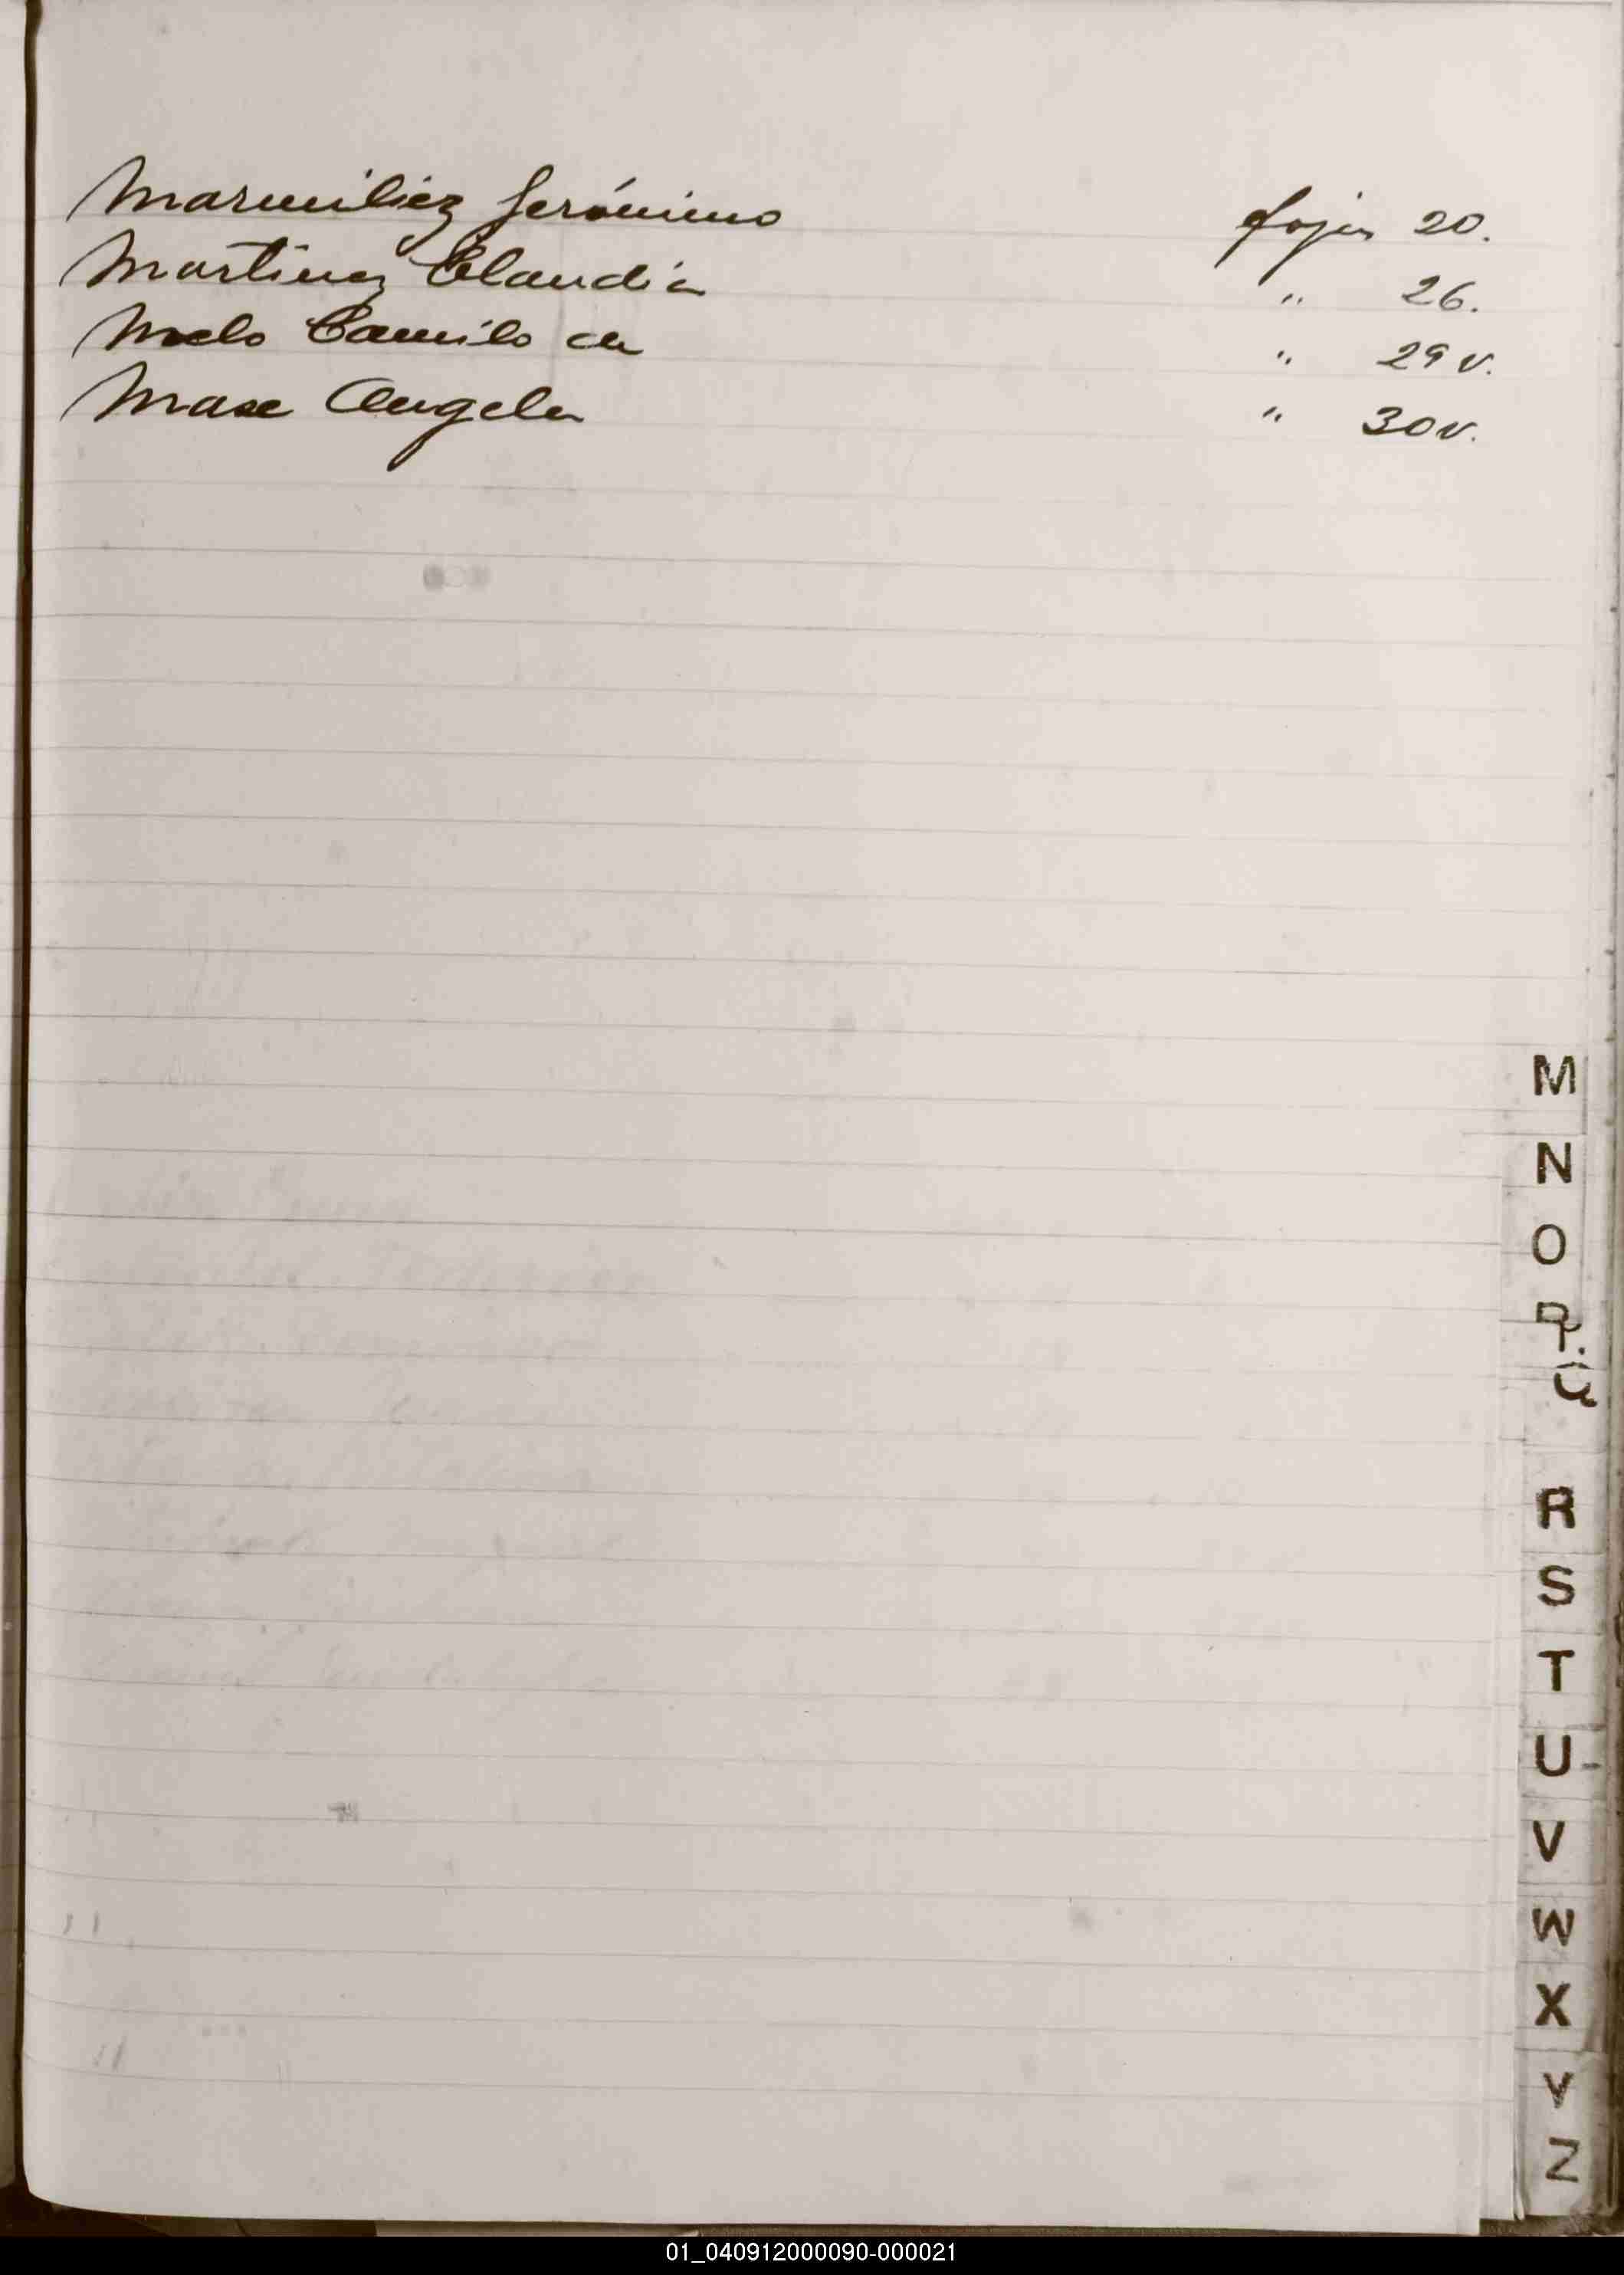 Marmiliez Gerónimo fojas 20.
Martinez Claudia " 26.
Melo Camilo de " 29 v.
Mase Angela " 30 v.
M
N
O
P.
Q
R
S
T
U
V
W
X
Y
Z
01_040912000090-000021